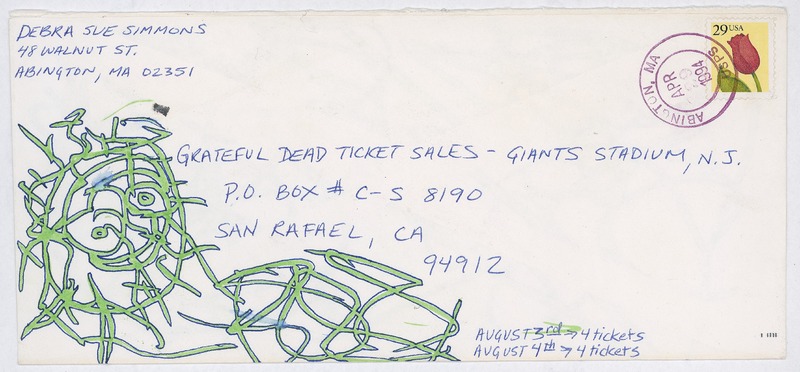 DEBRA SUE SIMMONS
48 WALNUT ST.
ABINGTON, MA 02351
29 USA
ABINGTON, MA
APR
1994
USPS
GRATEFUL DEAD TICKET SALES - GIANTS STADIUM, N.J.
P.O. BOX # C-S 8190
SAN RAFAEL, CA
94912
AUGUST 3rd → 4 tickets
AUGUST 4th → 4 tickets